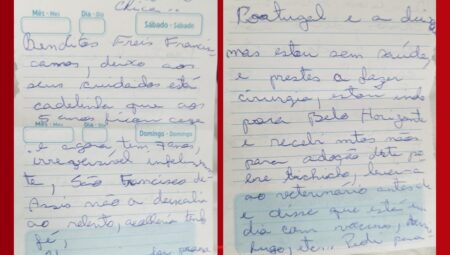 Chica..
Mês - Mes Dia - Día Sábado - Sábado
Benditos Freis Francis
canos, deixo aos
seus cuidados esta
cadelinha que aos
5 anos ficou cega
Mês - Mes Dia - Día Domingo - Domingo
e agora tem 7 anos,
irreversível infelizmen
te, São Francisco de
Assis não a deixaria
ao relento, acolheria tenho
fé,
Portugal e a
mas estou sem saúde,
e prestes a fazer
cirurgia, estou indo
para Belo Horizonte
e recebi muitos nãos
para adoção deste po
bre bichinho, levei-a
ao veterinário antes de
e disse que está em
dia com vacinas,
etc... Pedi para